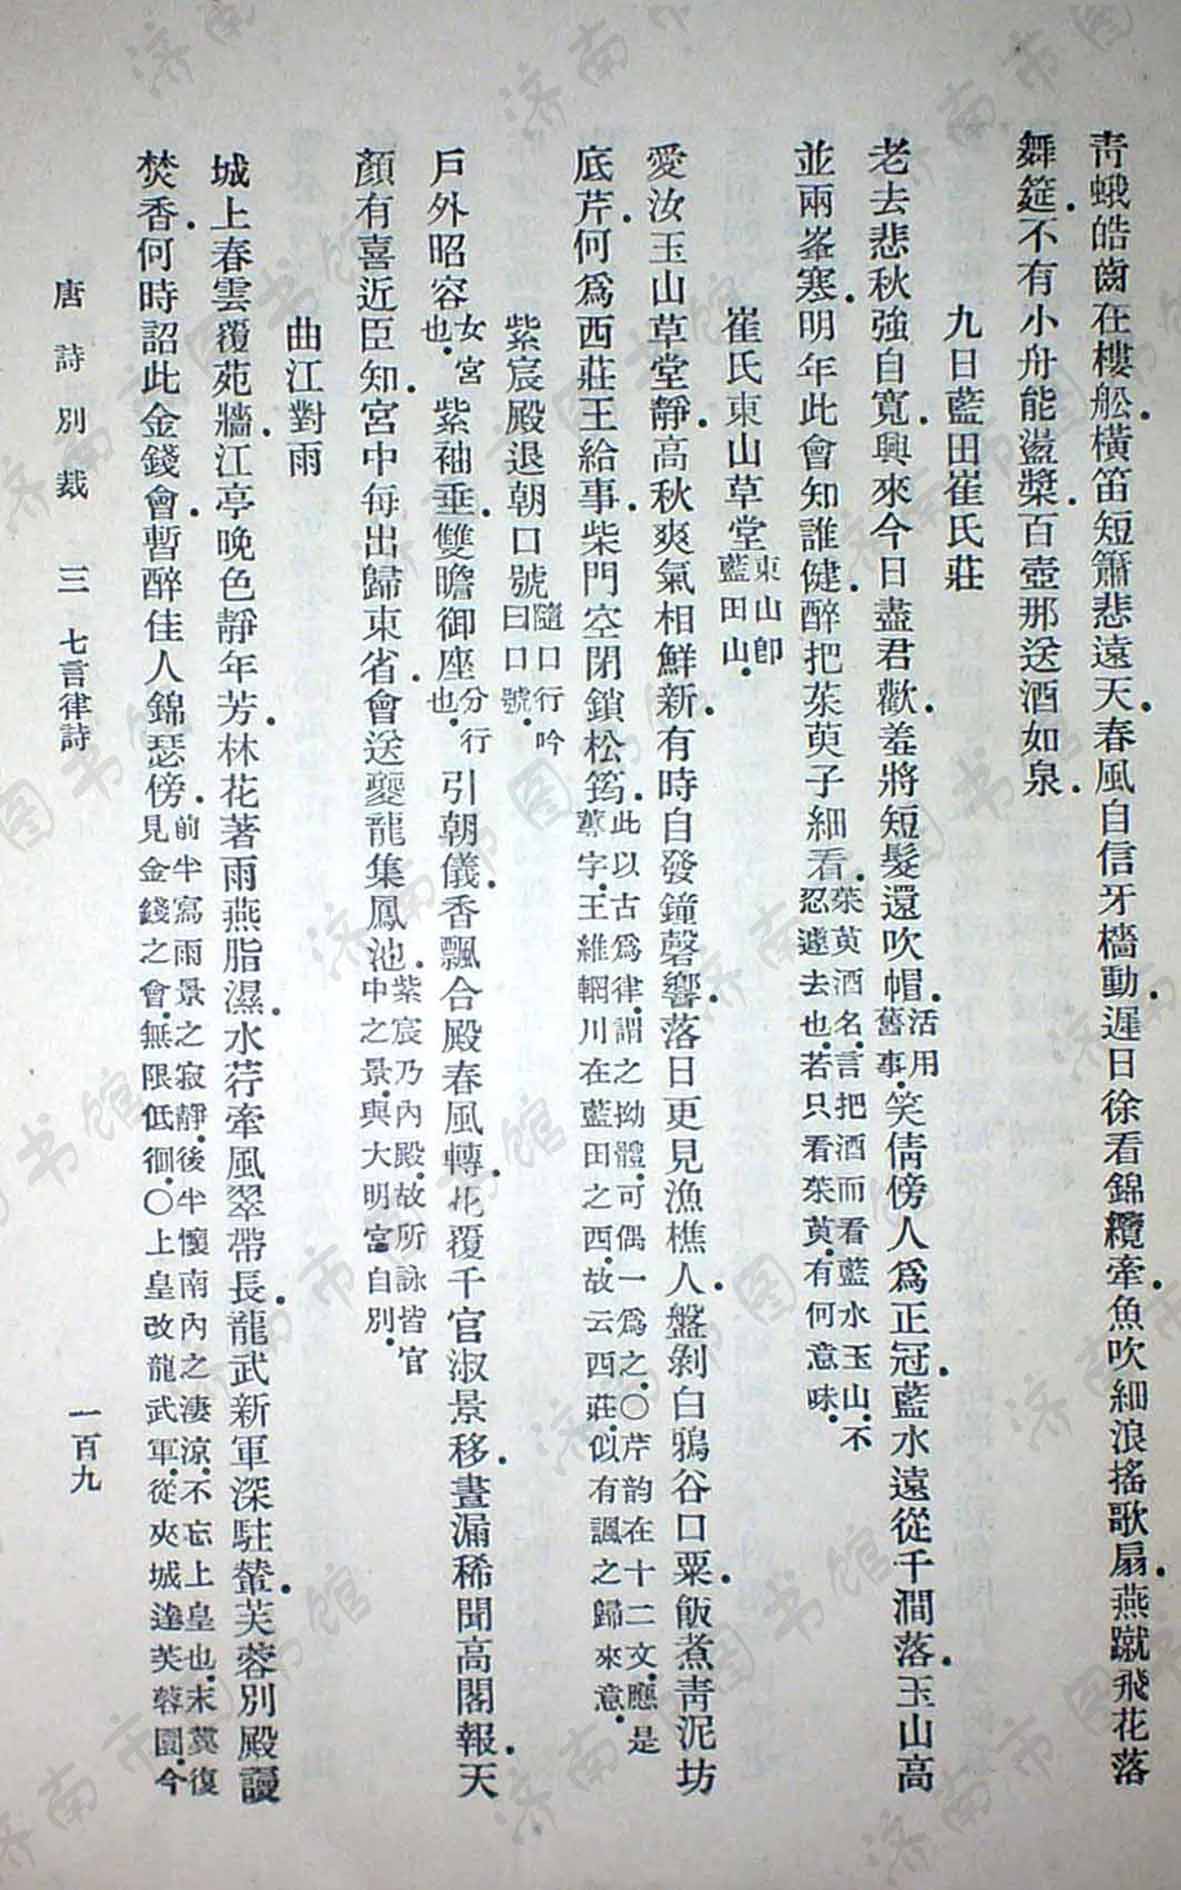 青蛾皓齒在樓船．橫笛短簫悲遠天．春風自信牙檣動．遲日徐看錦纜牽．魚吹細浪搖歌扇．燕蹴飛花落
舞筵．不有小舟能盪槳．百壺那送酒如泉．
九日藍田崔氏莊
老去悲秋強自寬．興來今日盡君歡．羞將短髮還吹帽．活用舊事．笑倩傍人爲正冠．藍水遠從千澗落．玉山高
並兩峯寒．明年此會知誰健．醉把茱萸子細看．茱萸酒名．言把酒而看藍水玉山．不忍遽去也．若只看茱萸．有何意味．
崔氏東山草堂東山卽藍田山．
愛汝玉山草堂靜．高秋爽氣相鮮新．有時自發鐘磬響．落日更見漁樵人．盤剝白鴉谷口粟．飯煮青泥坊
底芹．何爲西莊王給事．柴門空閉鎖松筠．此以古爲律．謂之拗體．可偶一爲之．〇芹韵在十二文．應是蓴字．王維輞川在藍田之西．故云西莊．似有諷之歸來意．
紫宸殿退朝口號隨口行吟曰口號．
戶外昭容女宮也．紫袖垂．雙瞻御座分行也．引朝儀．香飄合殿春風轉．花覆千官淑景移．晝漏稀聞高閣報．天
顏有喜近臣知．宮中每出歸東省．會送夔龍集鳳池．紫宸乃內殿．故所詠皆官中之景．與大明宮自別．
曲江對雨
城上春雲覆苑牆．江亭晚色靜年芳．林花著雨燕脂濕．水荇牽風翠帶長．龍武新軍深駐輦．芙蓉別殿謾
焚香．何時詔此金錢會．暫醉佳人錦瑟傍．前半寫雨景之寂靜．後半懷南內之淒涼．不忘上皇也．末冀復見金錢之會．無限低徊．〇上皇改龍武軍．從夾城達芙蓉園．今
唐詩別裁　三　七言律詩　一百九